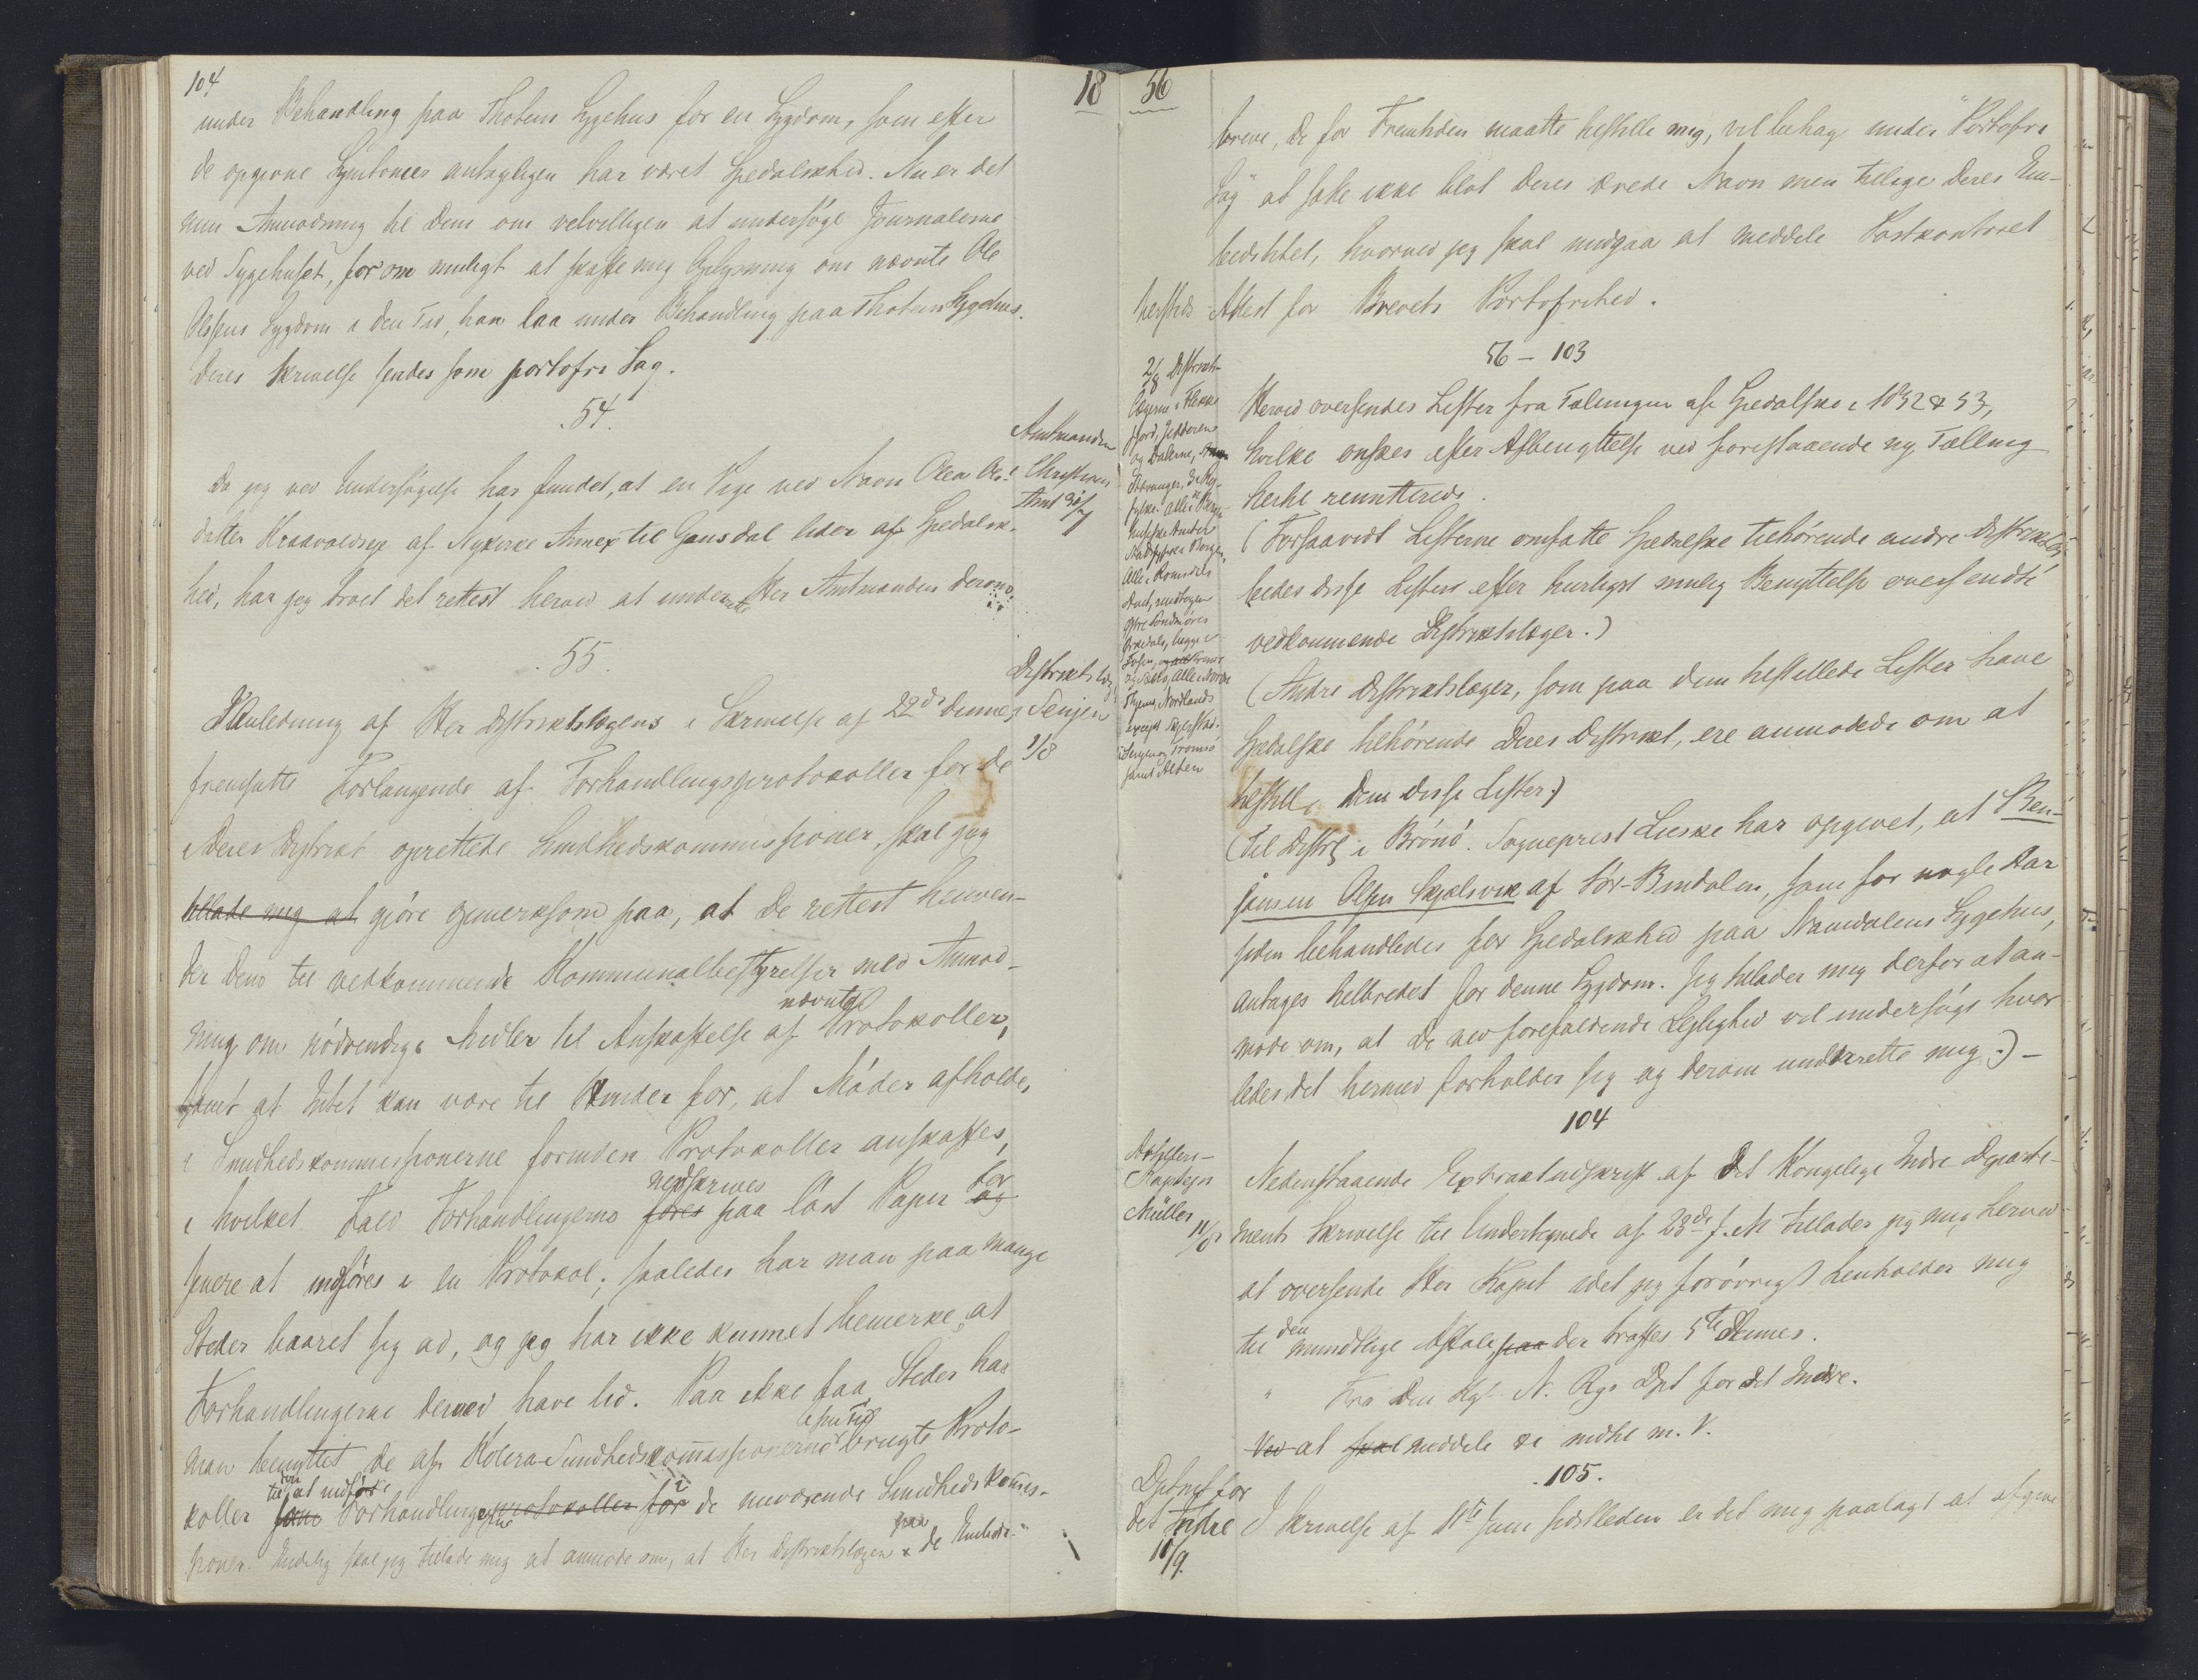 104
18
under Behandling paa Thotens Sygehus for en Sygdom, som efter
de opgivne Symtomer antageligen har været Spedalskhed. Nu er det
min Anmodning til Dem om velvilligen at undersøge Journalerne
ved Sygehuset, for om muligt at skaffe mig Oplysning om nævnte Ole
Olsens Sygdom i den Tid, han laa under Behandling paa Thotens Sygehus.
Deres Skrivelse sendes som portofri Sag.
54.
Amtmanden
Christians
Amt 31/7
Da jeg ved Undersøgelse har fundet, at en Pige ved Navn Olea Ols
datter Kraavoldseje af Nykirke Annex til Gausdal lider af Spedalsk-
hed, har jeg troet det rettest herved at underrette Her Amtmanden derom.
55.
Distriktslæg
Senjen
1/8
I Anledning af Her Distriktslægens i Skrivelse af 22de dennes
fremsatte Forlangende af Forhandlingsprotokoller for de
i Deres Distrikt oprettede Sundhedskommissioner, skal jeg
tillade mig at gjøre opmerksom paa, at De rettest henven-
der Dem til vedkommende Kommunalbestyrelser med Anmod-
ning om nødvendige Midler til Anskaffelse af nævnte Protokoller,
samt at Intet kan være til Hinder for, at Møder afholdes
i Sundhedskommissionerne forinden Protokoller anskaffes,
i hvilket Fald Forhandlingerne føres nedskrives paa løst Papir og for
senere at indføres i en Protokol; saaledes har man paa mange
Steder baaret sig ad, og jeg har ikke kunnet bemerke, at
Forhandlingerne derved have lid. Paa ikke faa Steder har
man benyttet de af Kolera-Sundhedskommissionerne brugte Proto-
koller som til at indføre Forhandlingerne protokoller for i de nuværende Sundhedskommis-
sioner. Endelig skal jeg tillade mig at anmode om, at Her Distriktslægen paa de Embeds-
56
breve, De for Fremtiden maatte tilstille mig, vil behage under "Portofri
Sag" at sætte ikke blot Deres ærede Navn men tillige Deres Em-
bedstitel, hvorved jeg skal undgaa at meddele Postkontoret
hersteds Attest for Brevets Portofrihed.
56 – 103
2/8 Distrikts-
lægerne i Flekke
fjord, Jedderen
og Dalerne,
Stavanger, I Ry-
fylke. Alle i Berg-
enhusske Amter
Stadsfysici Bergen,
Alle i Romsdals
Amt, undtagen
Østre Søndmøres
Orkedals, begge i
Fosen,
Alle i Nordre
Thjems, Nordlands
except
i Senjen og Tromsø
samt Alten
Herved oversendes Lister fra Tælingen af Spedalske i 1852 & 53,
hvilke ønskes efter Afbenyttelse ved forestaaende ny Tælling
hertil remitterede.
(Forsaavidt Listerne omfatte Spedalske tilhørende andre Distrikter
bedes disse Lister efter hurtigst mulig Benyttelse oversendte
vedkommende Distriktslæger.)
(Andre Distriktslæger, som paa dem tilstillede Lister have
Spedalske tilhørende Deres Distrikt, ere anmodede om at
tilstille Dem disse Lister.)
(Til Distrl i Brønø. Sogneprest Lieske har opgivet, at Ben-
jamin Olsen Skjelsvik af Sør-Bindalen, som for nogle Aar
siden behandledes for Spedalskhed paa Namdalens Sygehus,
antages helbredet for denne Sygdom. Jeg tillader mig derfor at an-
mode om, at De ved forefaldende Leilighed vil undersøge hvor-
ledes det hermed forholder sig og derom underrette mig.) –
104
Kaptejn
Müller
11/8
Nedenstaaende Extraktudskrift af Det Kongelige Indre-Departe-
ments Skrivelse til Undertegnede af 28de f. M. tillader jeg mig herved
at oversende Her Kaptn idet jeg forøvrigt henholder mig
til den mundtlige Aftale, paa der traffes 5te Dennes.
" Fra Den Kgl. N. Rgs Dpt for det Indre.
Ved at skal meddele De indtil m. V.
105.
Dptmt for
det Indre
10/9.
I Skrivelse af 11te Juni sidstleden er det mig paalagt at afgive